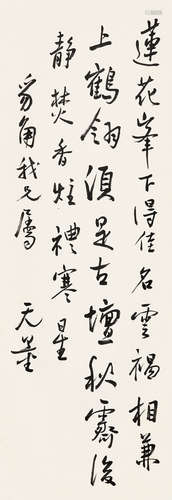 蓮花峯下得佳名雲褐相兼
上鶴翎須是古壇秋霽後
靜焚香炷禮寒星
角我兄屬